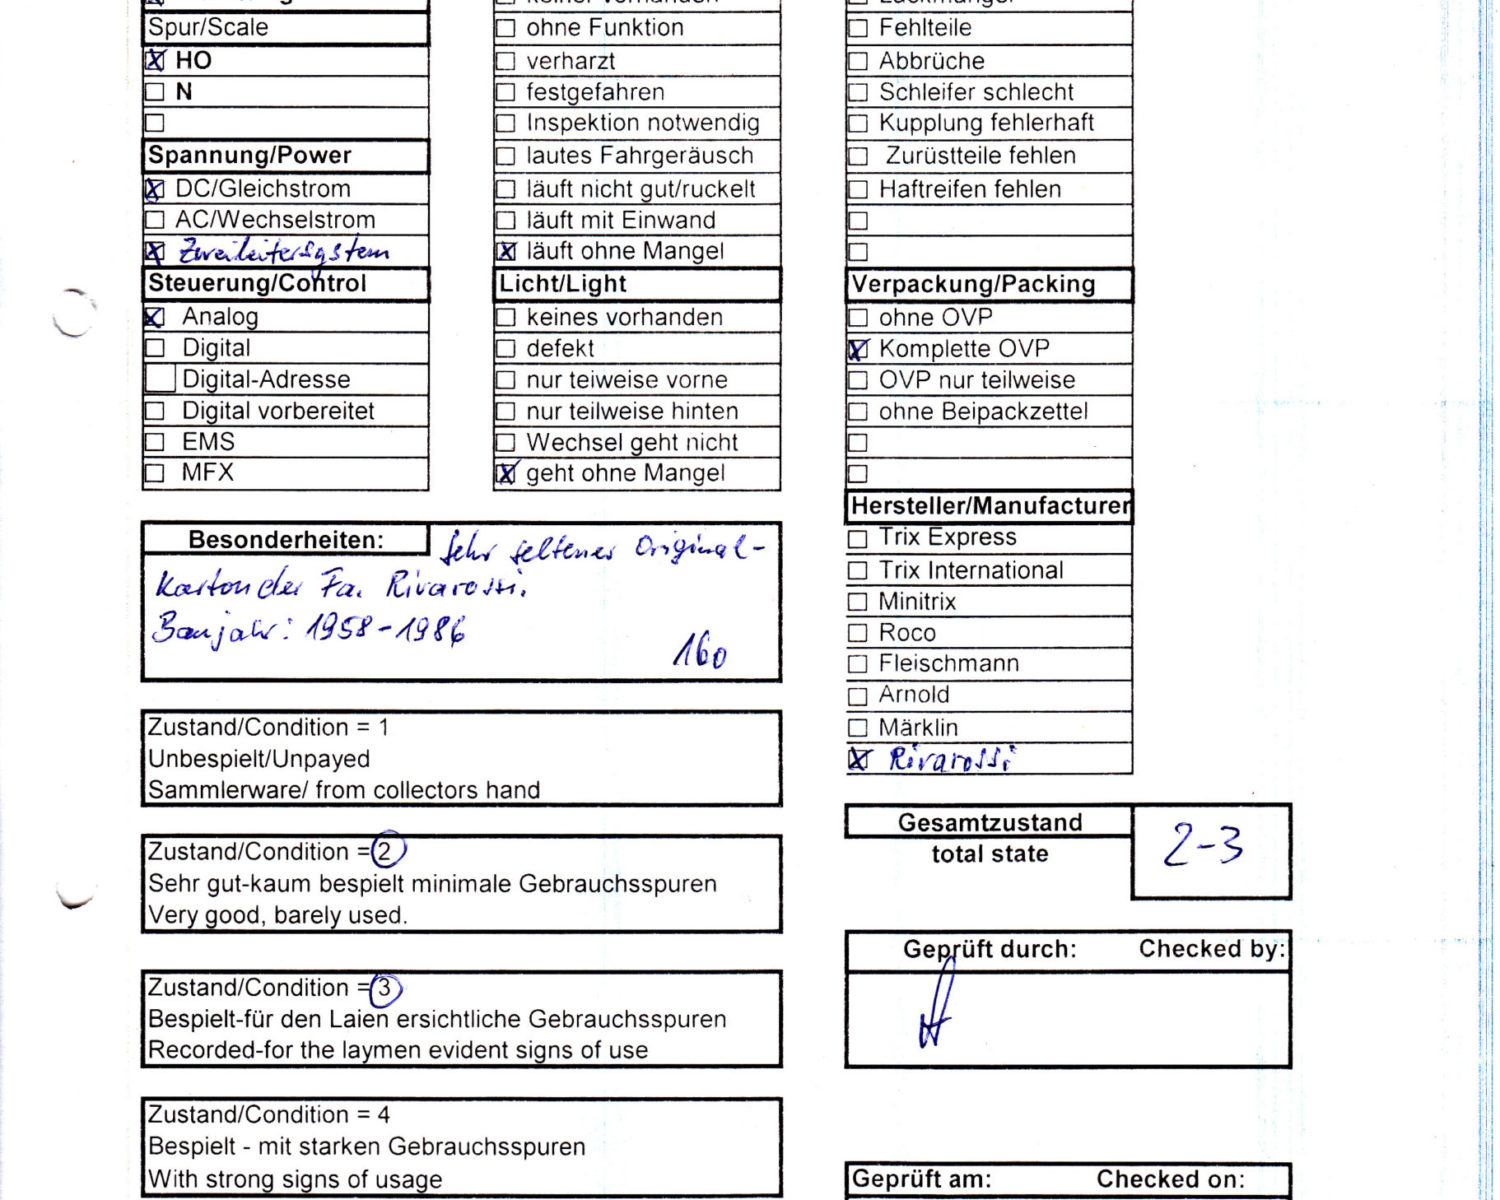 Spur/Scale
HO
N
Spannung/Power
DC/Gleichstrom
AC/Wechselstrom
Zweileitersystem
Steuerung/Control
Analog
Digital
Digital-Adresse
Digital vorbereitet
EMS
MFX
keiner vorhanden
ohne Funktion
verharzt
festgefahren
Inspektion notwendig
lautes Fahrgeräusch
läuft nicht gut/ruckelt
läuft mit Einwand
läuft ohne Mangel
Licht/Light
keines vorhanden
defekt
nur teiweise vorne
nur teilweise hinten
Wechsel geht nicht
geht ohne Mangel
Lackmängel
Fehlteile
Abbrüche
Schleifer schlecht
Kupplung fehlerhaft
Zurüstteile fehlen
Haftreifen fehlen
Verpackung/Packing
ohne OVP
Komplette OVP
OVP nur teilweise
ohne Beipackzettel
Hersteller/Manufacturer
Trix Express
Trix International
Minitrix
Roco
Fleischmann
Arnold
Märklin
Rivarossi
Besonderheiten: Sehr seltener Original-
Karton der Fa. Rivarossi.
Baujahr: 1958-1986
160
Zustand/Condition = 1
Unbespielt/Unpayed
Sammlerware/ from collectors hand
Zustand/Condition = 2
Sehr gut-kaum bespielt minimale Gebrauchsspuren
Very good, barely used.
Zustand/Condition = 3
Bespielt-für den Laien ersichtliche Gebrauchsspuren
Recorded-for the laymen evident signs of use
Zustand/Condition = 4
Bespielt - mit starken Gebrauchsspuren
With strong signs of usage
Gesamtzustand
total state
2-3
Geprüft durch: Checked by:
Geprüft am: Checked on: